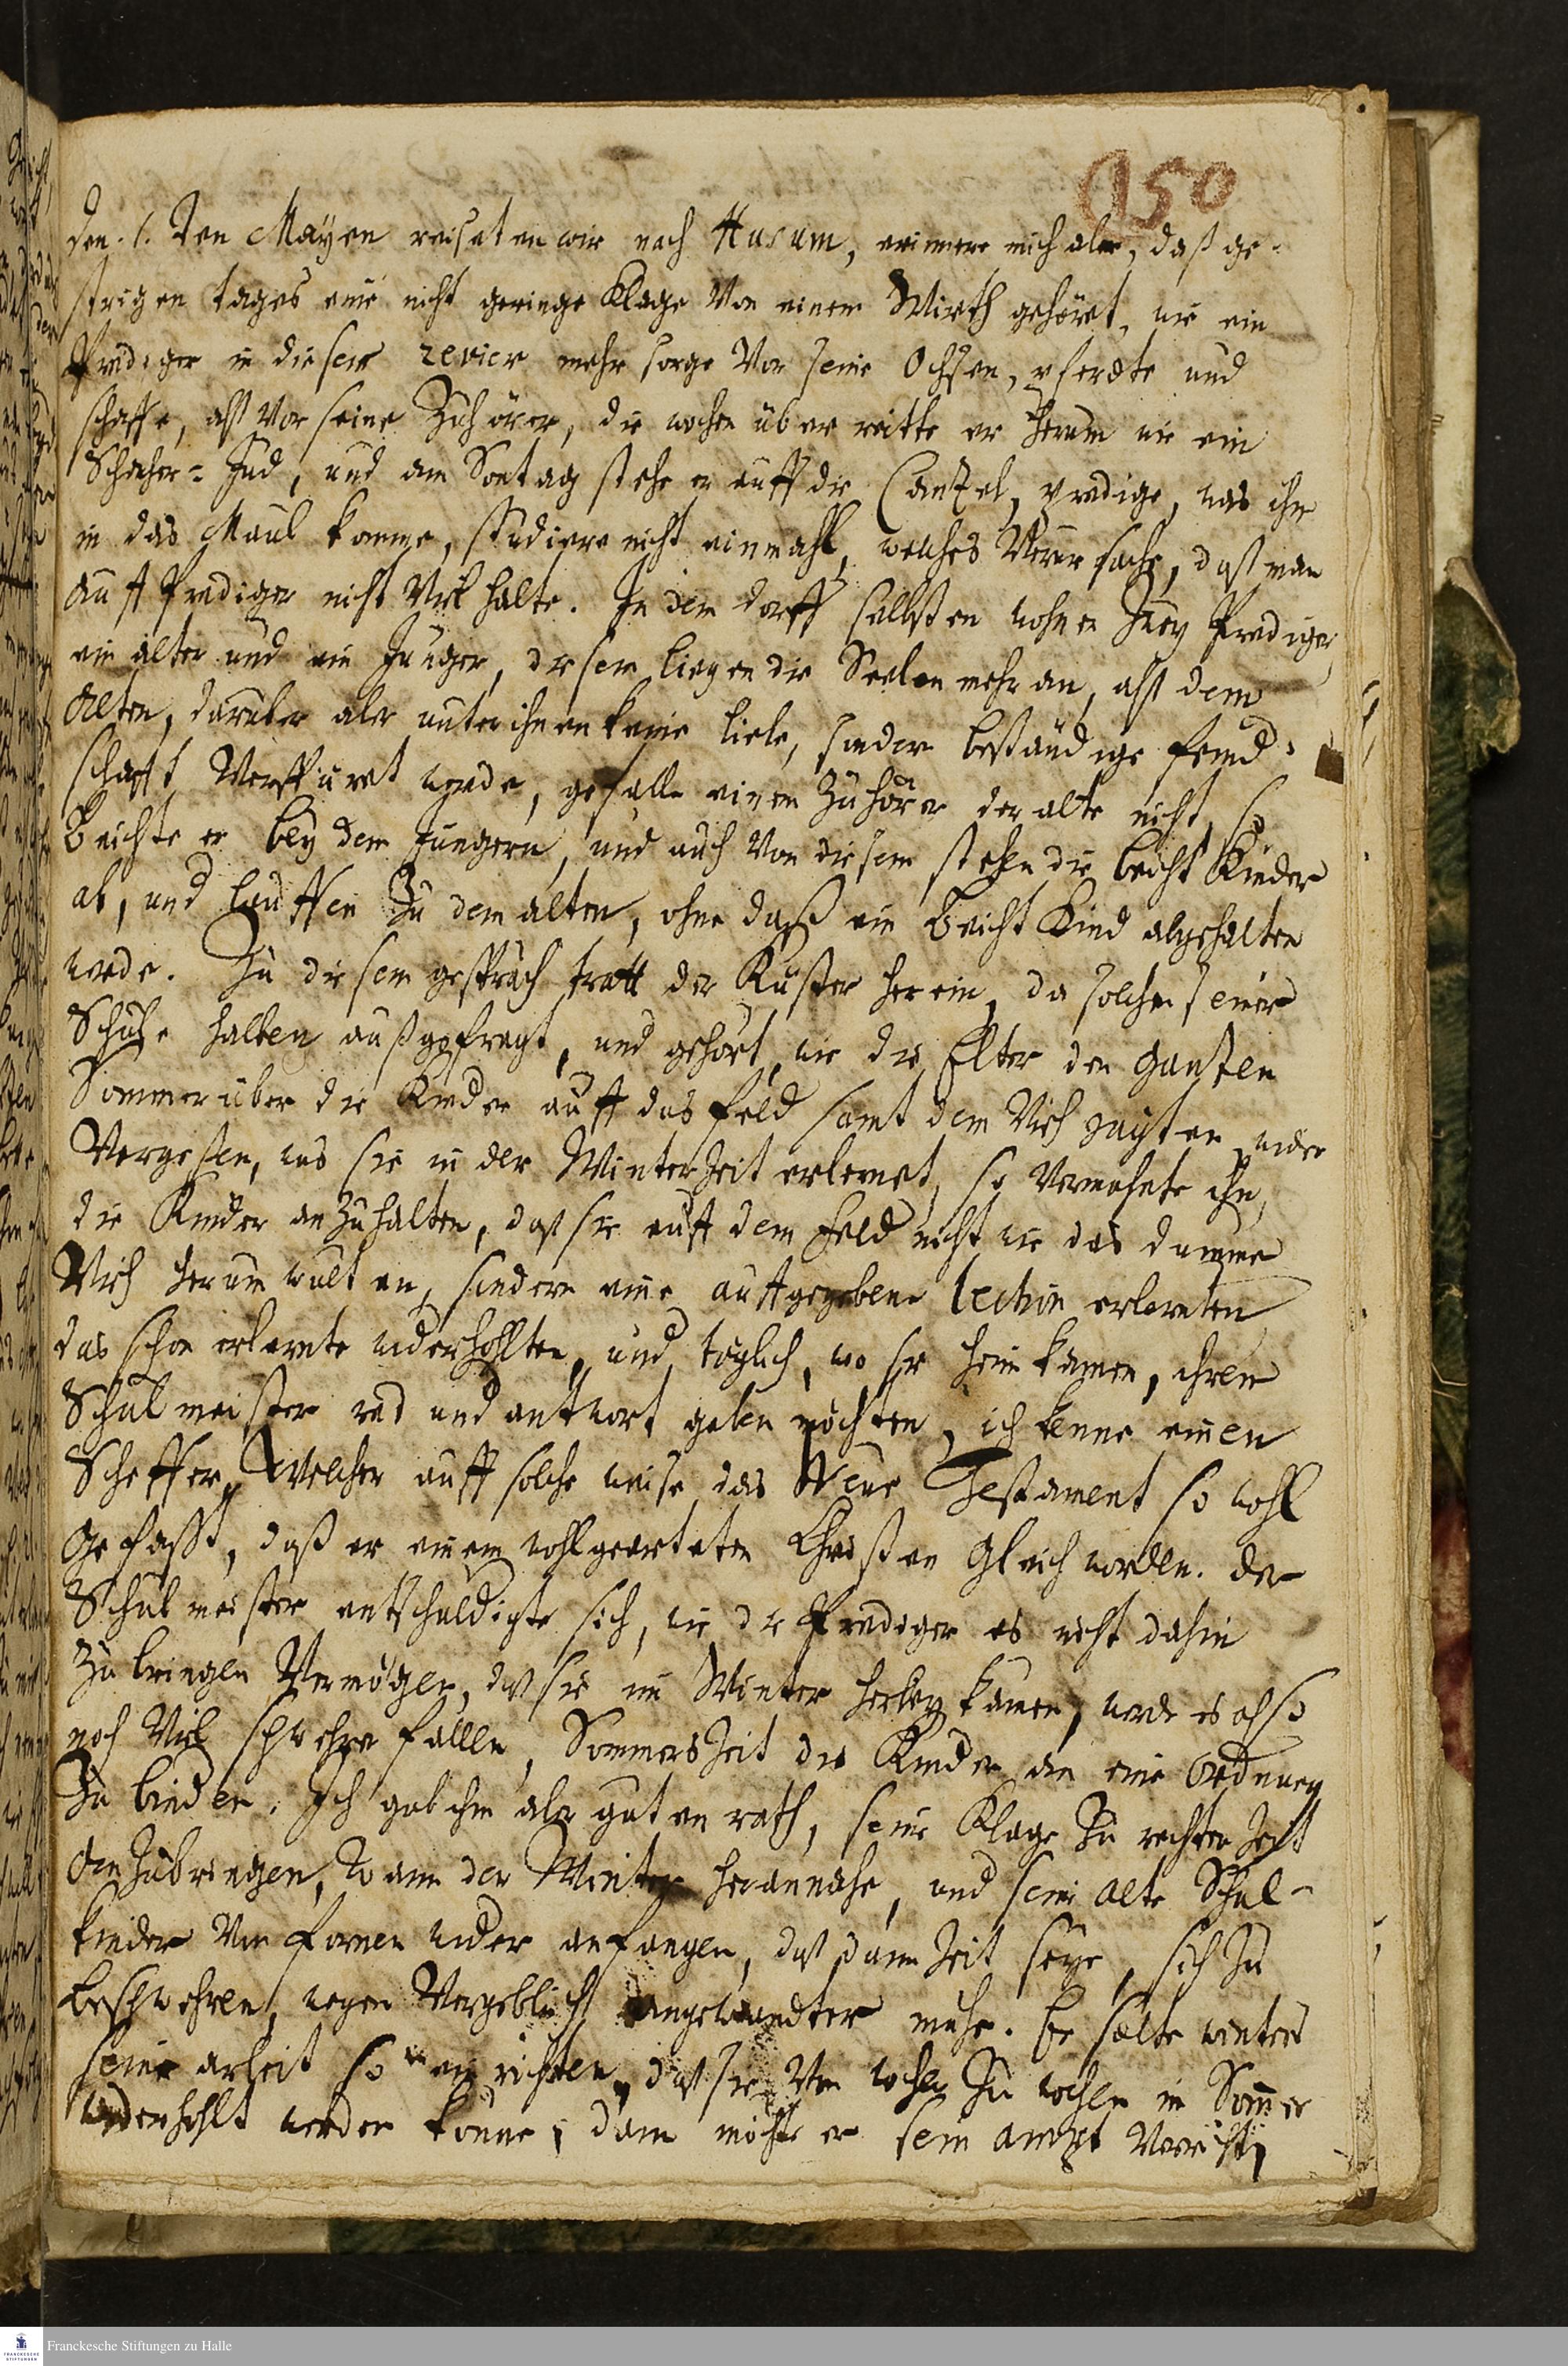 150
den. 1. ten Mäyen reiseten wir nach Husum, erinnere mich aber, daß ge-
strigen tages eine nicht geringe Klage Von einem Wirth gehöret, wie ein
Prediger in diesem revier mehr sorge Vor seine Ochsen, pferdte und
schaffe, alß Vor seine Zuhörer, die wochen über reitte er herum wie ein
Schacher-Jud, und am Sontag stehe er auff die Cantzel, predige, was ihm
in das Maul komme, studiere nicht einmahl, welches Verursache, daß man
auff Prediger nicht Viel halte. In dem dorff selbsten wohnen Zwey Prediger,
ein alter und ein Junger, disem liegen die Seelen mehr an, alß dem
Alten, darüber aber unter ihnen keine liebe, sonder beständige feind-
schafft Verspüret werde, gefalle einem Zuhörer der alte nicht, so
Beichte er bey dem Jüngern, und auch Von diesem stehen die beicht Kinder
ab, und lauffen Zu dem alten, ohne daß ein Beicht Kind abgehalten
werde. Zu disem gespräch tratt der Küster herein, da solchen seiner
Schule halben außgefragt, und gehört, wie die Elter den Gantzen
Sommer über die Kinder auff das feld samt dem Vieh jagten, wider
Vergeßen, was sie in der Winterzeit erlernet, so Vermahnte ihn,
die Kinder anzuhalten, daß sie auff dem Feld nicht wie das dumme
Vieh herum walten, sondern eine auffgegebene lection erlernten
das schon erlernte widerhohlten, und täglich, wo sie heim kämen, ihrem
Schulmeister red und antwort geben möchten, ich kenne einen
Scheffer, Welcher auff solche weise das Neue Testament so wohl
gefasst, daß er einem wohlgearteten Christen Gleich worden. der
Schulmeister entschuldigte sich, wie die Prediger es nicht dahin
Zu bringen Vermögen, daß sie im Winter herbey kämen, werde es also
noch Viel schwehre fallen, Sommerszeit die Kinder an eine Ordnung
Zu binden. Ich gab ihm aber guten rath, seine Klage Zu rechter Zeit
anzubringen, wann der Winter herannahe, und seine alte Schul-
kinder Von fornen wider anfangen, daß dann Zeit seye, sich Zu
beschwehren, wegen Vergeblich angewandter mühe. Er solte winters
seine arbeit so einrichten, daß sie Von wochen Zu wochen im Sommer
widerhohlt werden könne, dann möchte er sein ampt Verricht,
Franckesche Stiftungen zu Halle